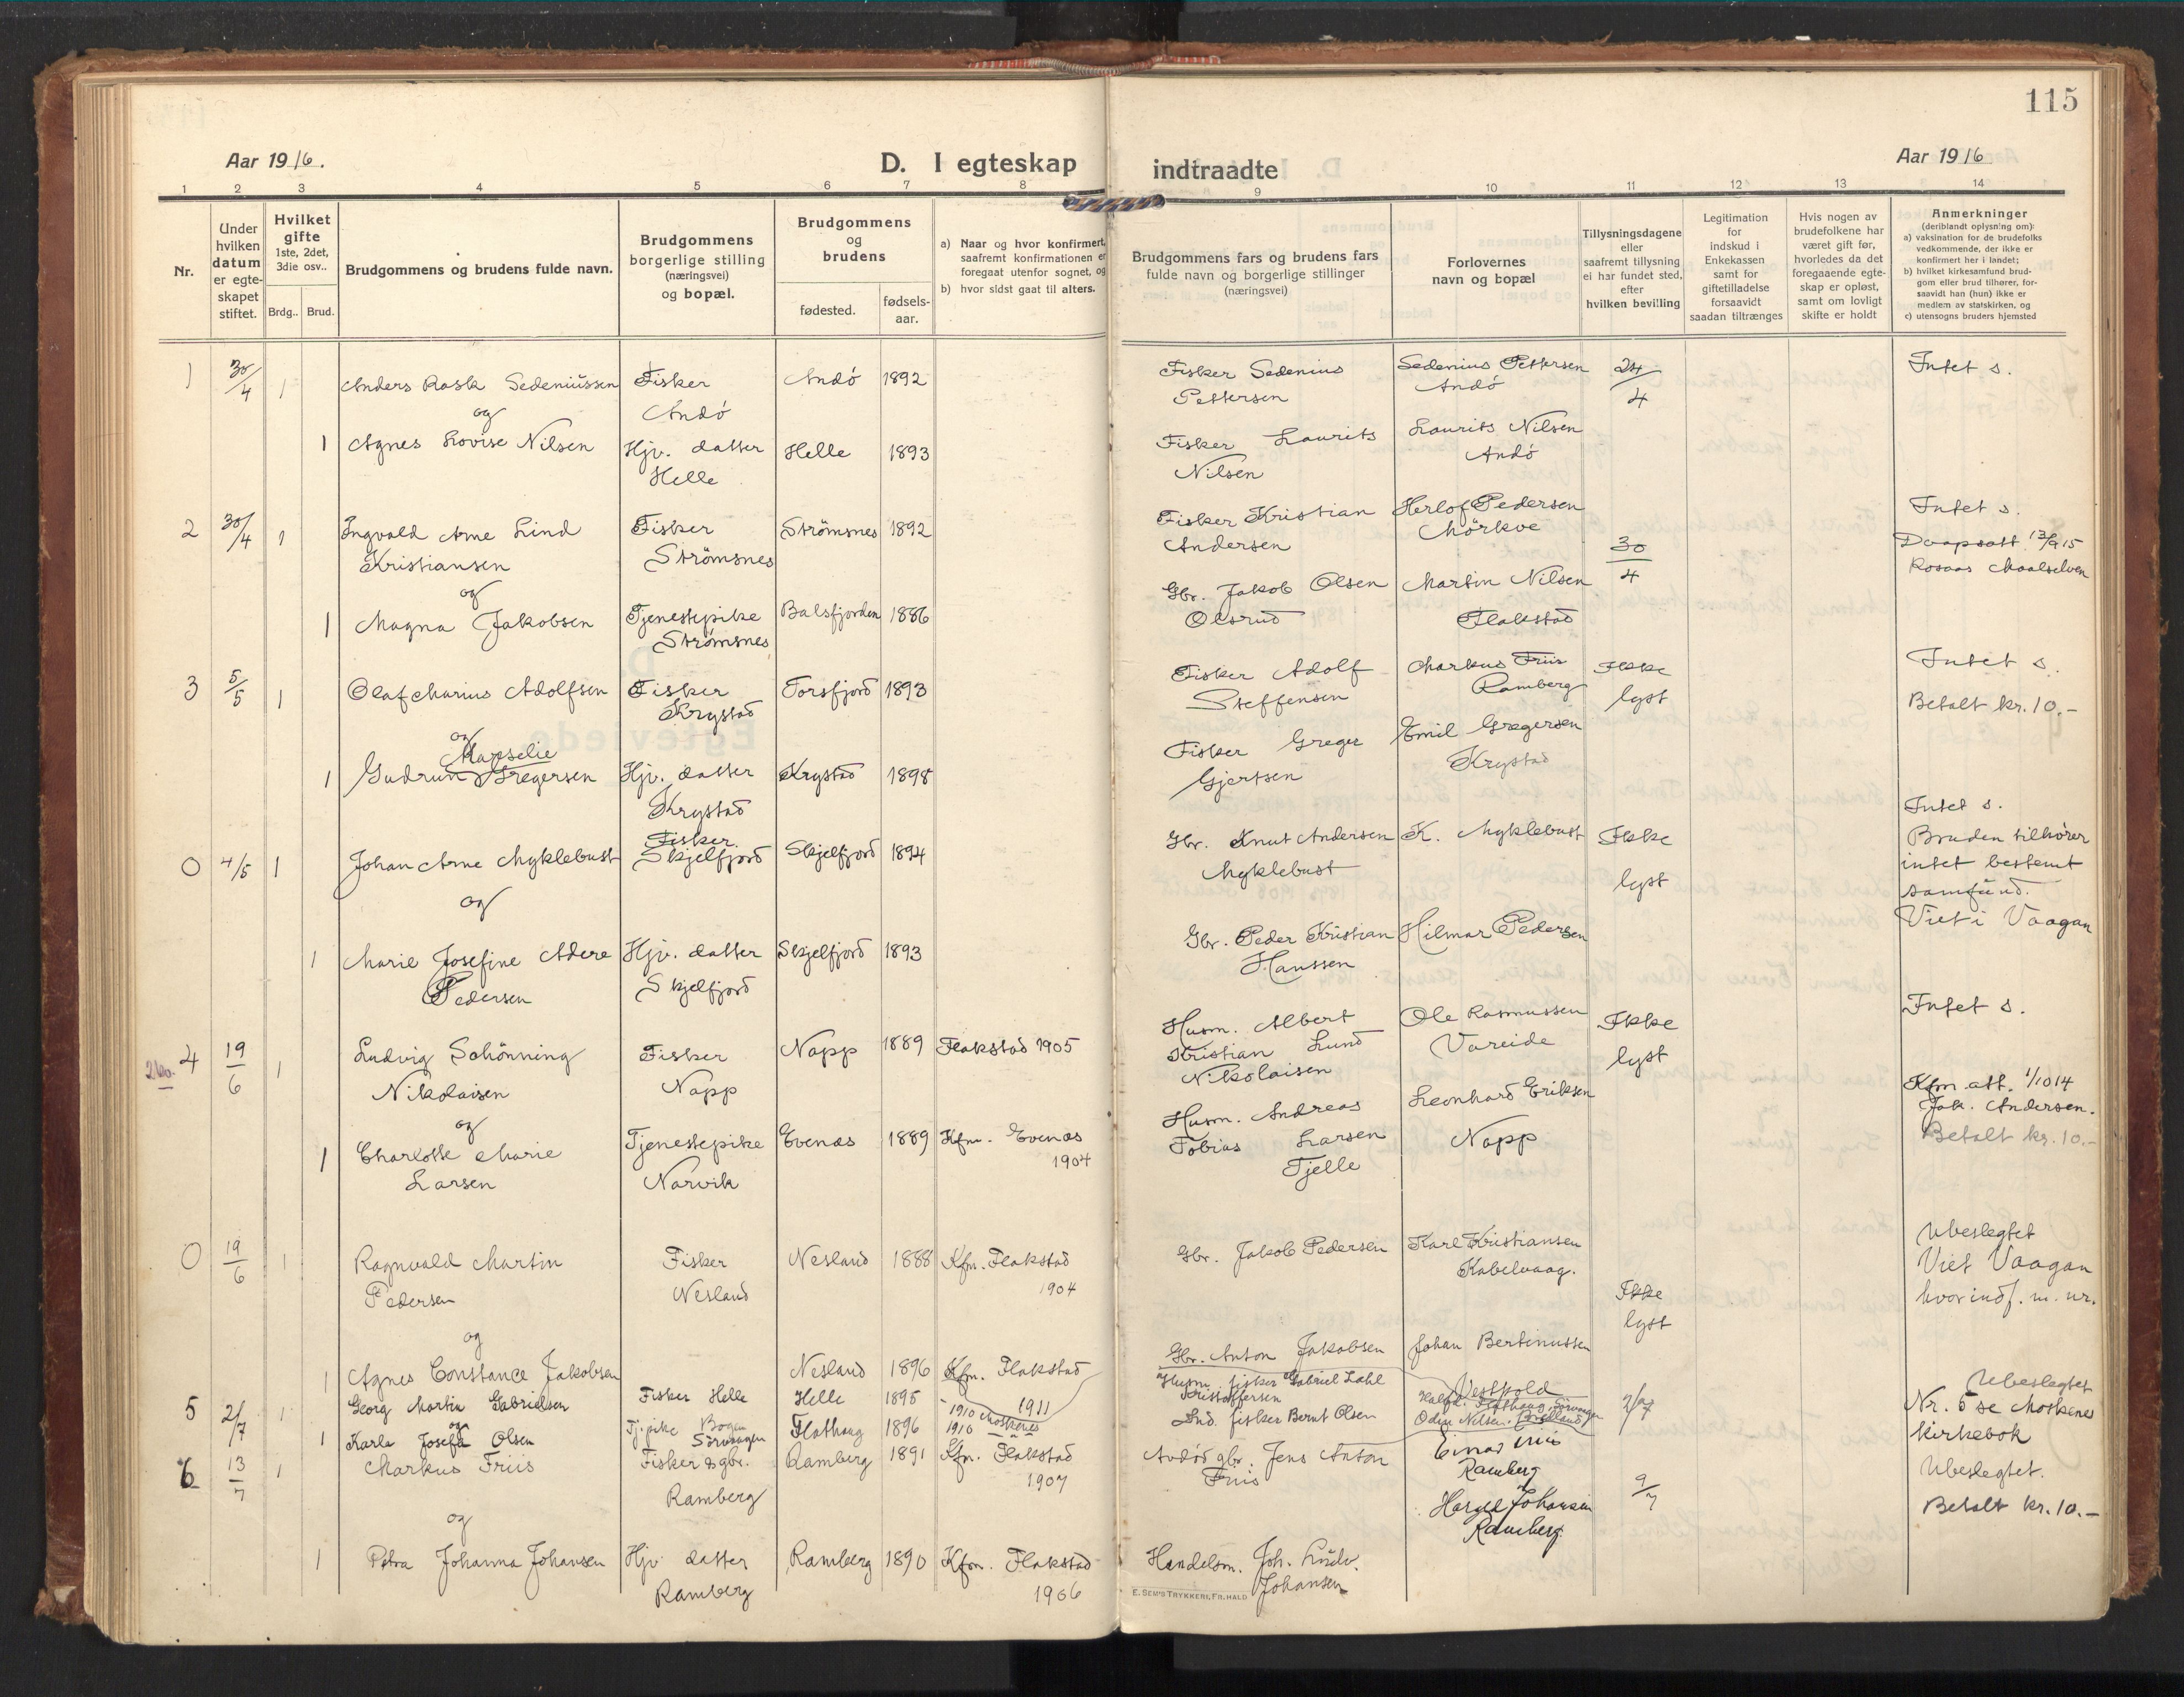 115
Aar 1916.
D. I egteskap indtraadte
Aar 1916
1 2 3 4 5 6 7 8 9 10 11 12 13 14
Nr.
Under hvilken datum er egteskapet stiftet.
Hvilket gifte 1ste, 2det, 3die osv..
Brdg.. Brud.
Brudgommens og brudens fulde navn.
Brudgommens borgerlige stilling (næringsvei) og bopæl.
Brudgommens og brudens
fødested.
fødsels-aar.
a) Naar og hvor konfirmert, saafremt konfirmationen er foregaat utenfor sognet, og
b) hvor sidst gaat til alters.
Brudgommens fars og brudens fars fulde navn og borgerlige stillinger (næringsvei)
Forlovernes navn og bopæl
Tillysningsdagene eller saafremt tillysning ei har fundet sted, efter hvilken bevilling
Legitimation for indskud i Enkekassen samt for giftetilladelse forsaavidt saadan tiltrænges
Hvis nogen av brudefolkene har været gift før, hvorledes da det foregaaende egteskap er opløst, samt om lovligt skifte er holdt
Anmerkninger (deriblandt oplysning om):
a) vaksination for de brudefolks vedkommende, der ikke er konfirmert her i landet;
b) hvilket kirkesamfund brudgom eller brud tilhører, forsaavidt han (hun) ikke er medlem av statskirken, og
c) utensogns bruders hjemsted
1 30/4 1 Anders Rask Sedeniussen Fisker Andö Andö 1892 Fisker Sedenius Pettersen Sedenius Pettersen Andö 24/4 Intet s.
og
1 Agnes Lovise Nilsen Hjv. datter Helle Helle 1893 Fisker Laurits Nilsen Laurits Nilsen Andö
2 30/4 1 Ingvald Arne Lind Kristiansen Fisker Strömsnes Strömsnes 1892 Fisker Kristian Andersen Herlof Pedersen Mörkve 30/4 Intet s.
Daapsatt 13/9 15 Rosaas Maalselven
og
1 Magna Jakobsen Tjenestepike Strömsnes Balsfjorden 1886 Gbr. Jakob Olsen Olsrud Martin Nilsen Flakstad
3 5/5 1 Olaf Marius Adolfsen Fisker Krystad Torsfjord 1893 Fisker Adolf Steffensen Markus Friis Ramberg Ikke lyst Intet s.
Betalt kr. 10.-
og
1 Gudrun Marselie Gregersen Hjv. datter Krystad Krystad 1898 Fisker Greger Gjertsen Emil Gregersen Krystad
0 4/5 1 Johan Arne Myklebust Fisker. Skjelfjord Skjelfjord 1894 Gbr. Knut Andersen Myklebust K. Myklebust Ikke lyst Intet s.
Bruden tilhører intet bestemt samfund.
Viet i Vaagan
og
1 Marie Josefine Adere Pedersen Hjv. datter Skjelfjord Skjelfjord 1893 Gbr. Peder Kristian Hanssen Hilmar Pedersen
4 19/6 1 Ludvig Schönning Nikolaisen Fisker Napp Napp 1889 Flakstad 1905 Husm. Albert Kristian Lund Nikolaisen Ole Rasmussen Vareide Ikke lyst Intet s.
og
1 Charlotte Marie Larsen Tjenestepike Narvik Evenes 1889 Kfm. Evenes 1904 Husm. Andreas Tobias Larsen Tjelle Leonhard Eriksen Napp Kfm. att. 1/10 14
Jak. Andersen.
Betalt kr. 10.-
0 19/6 1 Ragnvald Martin Pedersen Fisker Nesland Nesland 1888 Kfm. Flakstad 1904 Gbr. Jakob Pedersen Karl Kristiansen Kabelvaag. Ikke lyst Ubeslegtet
Viet Vaagan hvor indf. m. nr.
og
1 Agnes Constance Jakobsen Nesland 1896 Kfm. Flakstad 1911 Gbr. Anton Jakobsen Johan Bertinussen Vestpold
5 2/7 1 Georg Martin Gabrielsen Fisker Helle Helle 1895 1910 Moskenes Husm. fisker Gabriel Dahl Kristoffersen 2/7 Ubeslegtet
Nr. 5 se Moskenes kirkebok
og
1 Karla Josefa Olsen Tj. pike Bogen Sörvaagen Flathaug 1896 1910 Ind. fisker Bernt Olsen Odin Nilsen.
6 13/7 1 Markus Friis Fisker & gbr. Ramberg Ramberg 1891 Kfm. Flakstad 1907 gbr. Jens Anton Friis Einar Friis Ramberg 9/7 Ubeslegtet.
Betalt kr. 10.-
og
1 Petra Johanna Johansen Hjv. datter Ramberg Ramberg 1890 Kfm. Flakstad 1906 Handelsm. Joh. Ludv. Johansen Johansen Ramberg.
E. SEM'S TRYKKERI, FR.HALD